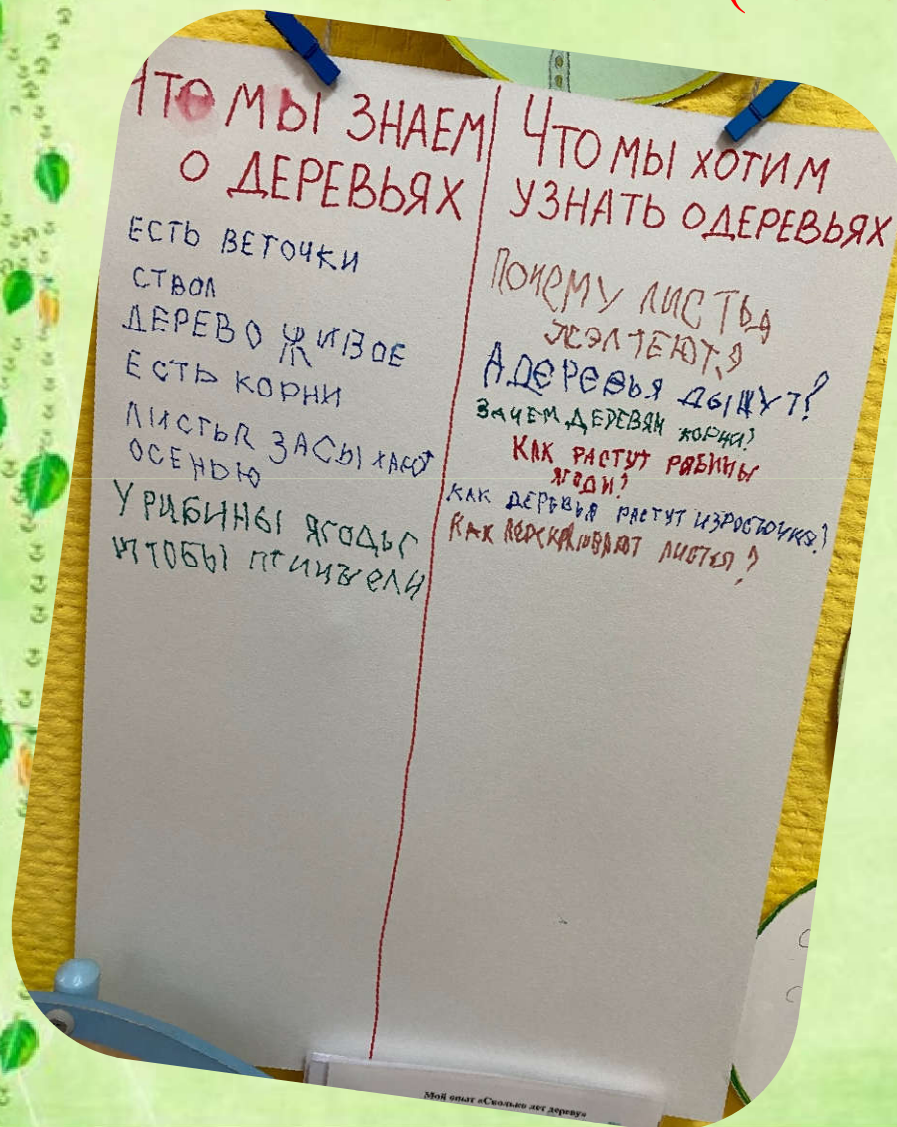 ЧТО МЫ ЗНАЕМ
О ДЕРЕВЬЯХ
ЕСТЬ ВЕТОЧКИ
СТВОЛ
ДЕРЕВО ЖИВОЕ
ЕСТЬ КОРНИ
ЛИСТЬЯ ЗАСЫХАЮТ
ОСЕНЬЮ
У РИБИНЫ ЯГОДЫ
ЧТОБЫ ПТИЦЫ ЕЛИ
ЧТО МЫ ХОТИМ
УЗНАТЬ О ДЕРЕВЬЯХ
ПОЧЕМУ ЛИСТЬЯ
ЖЭЛТЕЮТ?
А ДЕРЕВЬЯ ДЫШУТ?
ЗАЧЕМ ДЕРЕВЯМ КОРНИ?
КАК РАСТУТ РЯБИНЫ
ЯГОДИ?
КАК ДЕРЕВЬЯ РАСТУТ ИЗ РОСТОЧКА?
КАК ЛИСТЬЯ?
Мой опыт «Сколько лет дереву»